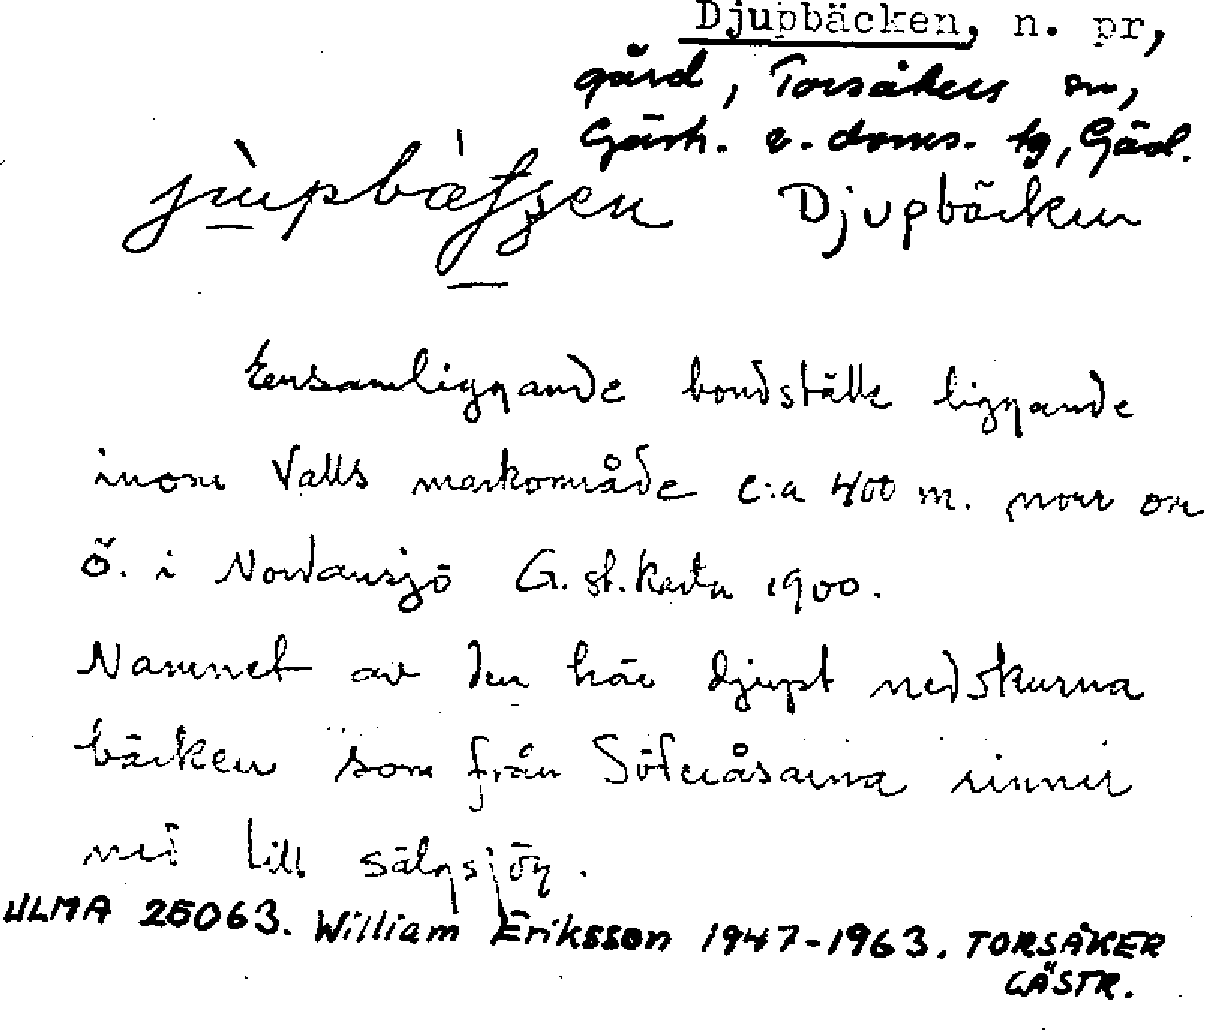 Djupbäcken, n. pr,
gård, Torsåkers sn,
Gästr. ö. doms. tg, Gävl.
Djupbäcken
Ensamliggande bondställe liggande
inom Valls markområde c:a 400 m. norr om
ö. i Nordansjö G. st. karta 1900.
Namnet av den här djupt nedskurna
bäcken som från Söteråsarna rinner
ned till sälgsjön.
ULMA 25063. William Eriksson 1947-1963. TORSÅKER
GÄSTR.